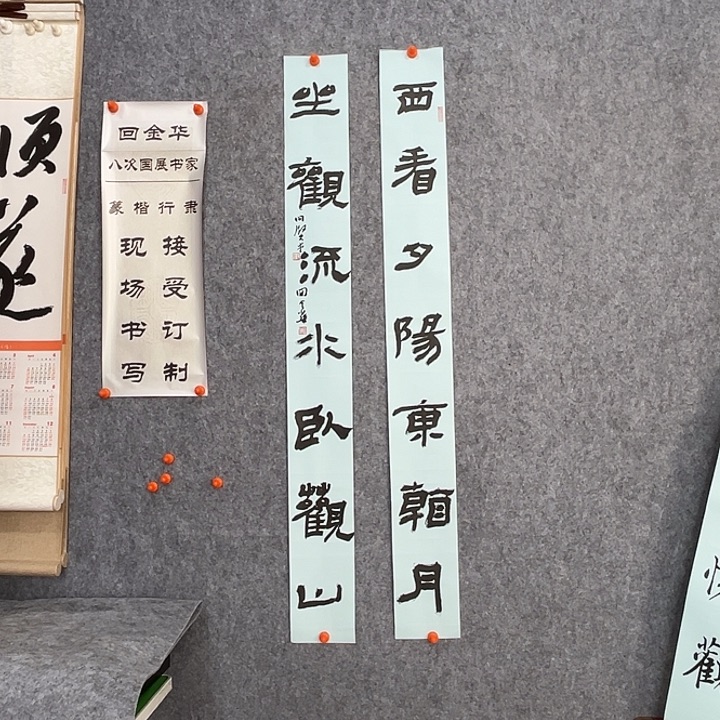 順遂
回金华
八次国展书家
篆楷行隶
现场书写
接受订制
西看夕陽東朝月
坐觀流水臥觀山
觀